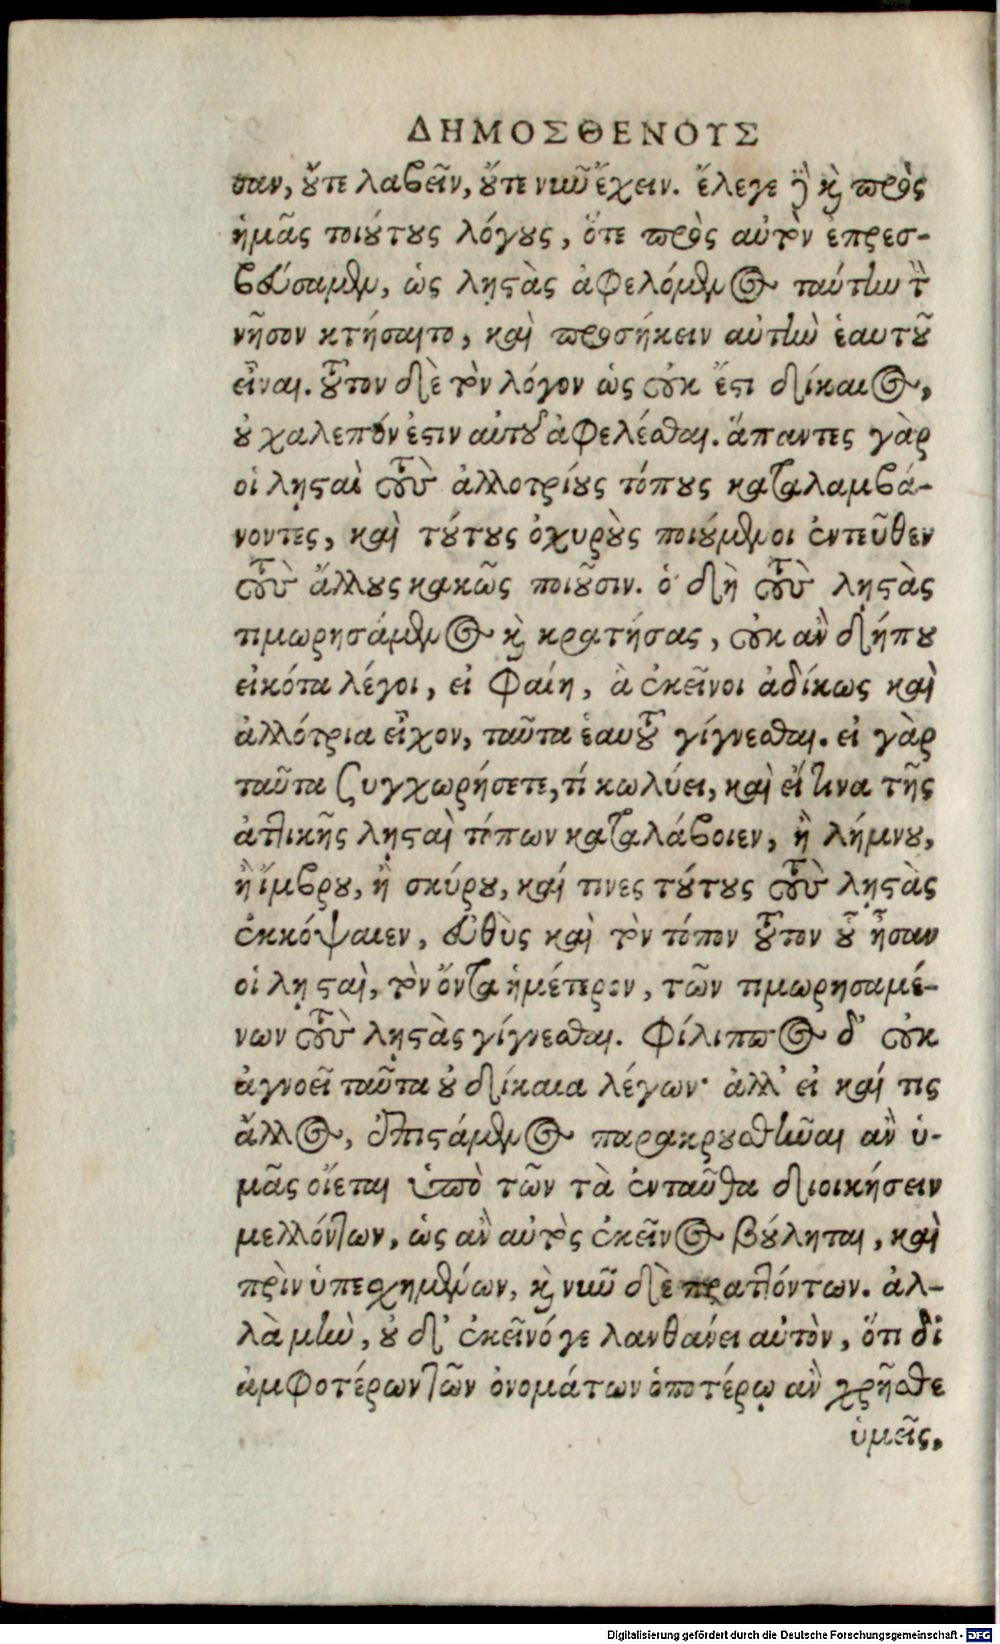 ΔΗΜΟΣΘΕΝΟΥΣ
σαν, οὔτε λαβεῖν, οὔτε νῦν ἔχειν. ἔλεγε δὲ καὶ πρὸς
ἡμᾶς τοιούτους λόγους, ὅτε πρὸς αὐτὸν ἐπρεσ-
βεύσαμεν, ὡς λῃστὰς ἀφελόμενος ταύτην τὴν
νῆσον κτήσαιτο, καὶ προσήκειν αὐτὴν ἑαυτοῦ
εἶναι. τοῦτον δὲ τὸν λόγον ὡς οὐκ ἔστι δίκαιος,
οὐ χαλεπόν ἐστιν αὐτοῦ ἀφελέσθαι. ἅπαντες γὰρ
οἱ λῃσταὶ τοὺς ἀλλοτρίους τόπους καταλαμβά-
νοντες, καὶ τούτους ὀχυροὺς ποιούμενοι ἐντεῦθεν
τοὺς ἄλλους κακῶς ποιοῦσιν. ὁ δὴ τοὺς λῃστὰς
τιμωρησάμενος καὶ κρατήσας, οὐκ ἂν δήπου
εἰκότα λέγοι, εἰ φαίη, ἃ ἐκεῖνοι ἀδίκως καὶ
ἀλλότρια εἶχον, ταῦτα ἑαυτοῦ γίγνεσθαι. εἰ γὰρ
ταῦτα συγχωρήσετε, τί κωλύει, καὶ εἴ τινα τῆς
ἀττικῆς λῃσταὶ τόπων καταλάβοιεν, ἢ λήμνου,
ἢ ἴμβρου, ἢ σκύρου, καί τινες τούτους τοὺς λῃστὰς
ἐκκόψαιεν, εὐθὺς καὶ τὸν τόπον τοῦτον οὗ ἦσαν
οἱ λῃσταὶ, τὸν ὄντα ἡμέτερον, τῶν τιμωρησαμέ-
νων τοὺς λῃστὰς γίγνεσθαι. Φίλιππος δ' οὐκ
ἀγνοεῖ ταῦτα οὐ δίκαια λέγων· ἀλλ' εἰ καί τις
ἄλλος, ἐπιστάμενος παρακρουσθῆναι ἂν ὑ-
μᾶς οἴεται ὑπὸ τῶν τὰ ἐνταῦθα διοικήσειν
μελλόντων, ὡς ἂν αὐτὸς ἐκεῖνος βούληται, καὶ
πρὶν ὑπεσχημένων, καὶ νῦν δὲ πραττόντων. ἀλ-
λὰ μὴν, οὐδ' ἐκεῖνό γε λανθάνει αὐτὸν, ὅτι δι
ἀμφοτέρων τῶν ὀνομάτων ὁποτέρῳ ἂν χρῆσθε
ὑμεῖς,
Digitalisierung gefördert durch die Deutsche Forschungsgemeinschaft - DFG